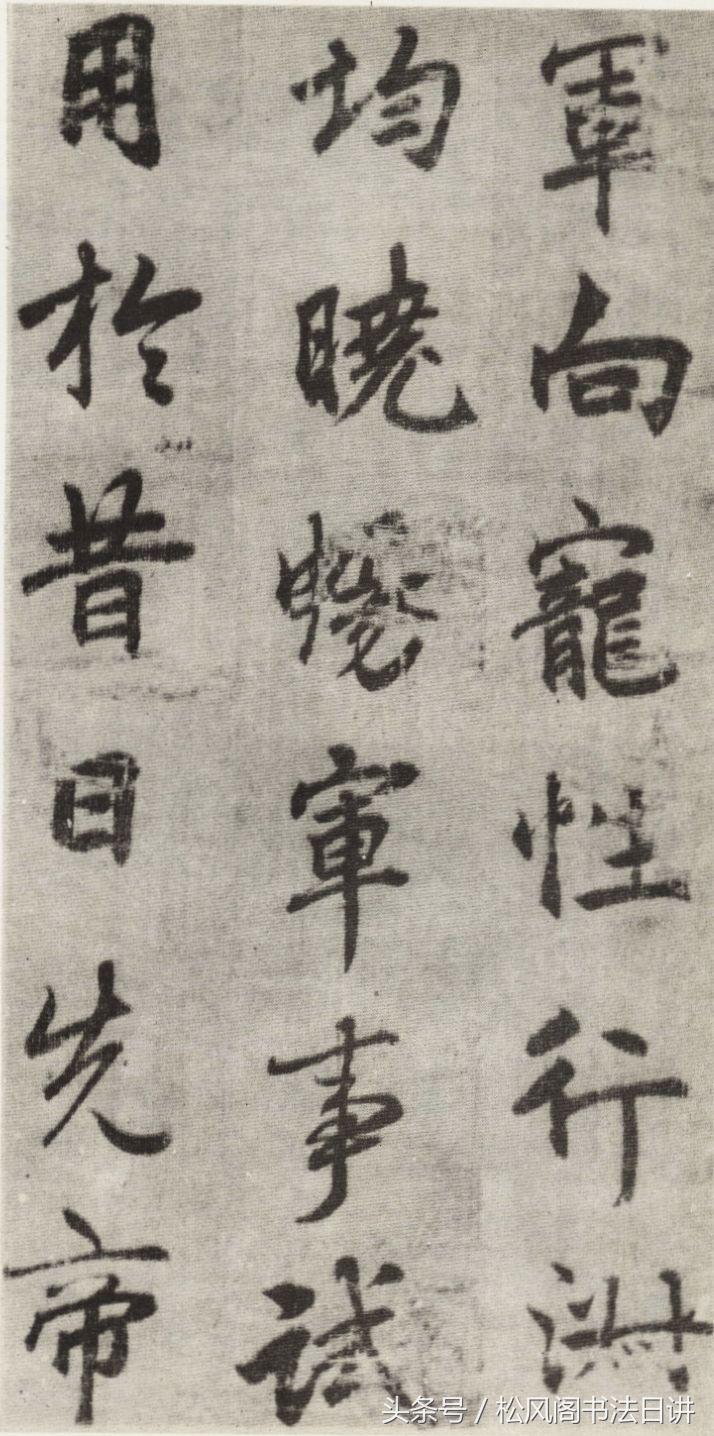 軍向寵性行淑
均曉暢軍事試
用於昔日先帝
头条号 / 松风阁书法日讲